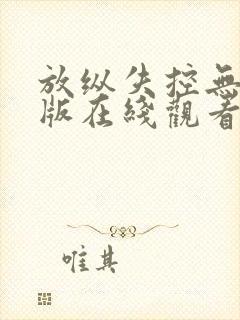 放纵失控無
版在綫觀看
唯其